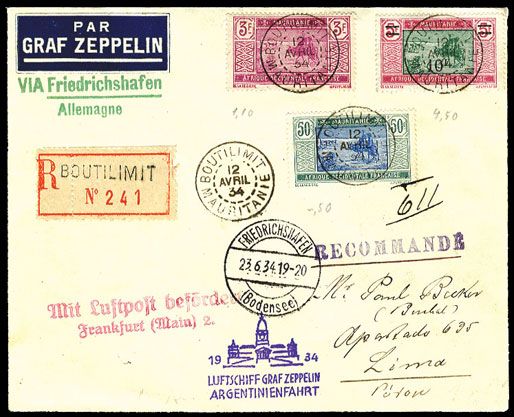 PAR
GRAF ZEPPELIN
VIA Friedrichshafen
Allemagne
3F
MAURITANIE
12
AVRIL
34
AFRIQUE OCCIDENTALE FRANÇAISE
MAURITANIE
10F
12
34
AFRIQUE OCCIDENTALE FRANÇAISE
1,10
4,50
50c
MAURITANIE
50c
12
AVRIL
34
AFRIQUE OCCIDENTALE FRANÇAISE
-,50
R BOUTILIMIT
N° 241
BOUTILIMIT
12
AVRIL
34
MAURITANIE
611
RECOMMANDÉ
FRIEDRICHSHAFEN
23.6.34.19-20
(Bodensee)
Mit Luftpost befördert
Frankfurt (Main) 2.
1934
LUFTSCHIFF GRAF ZEPPELIN
ARGENTINIENFAHRT
Mr Paul Becker
Apartado 635
Lima
Pérou